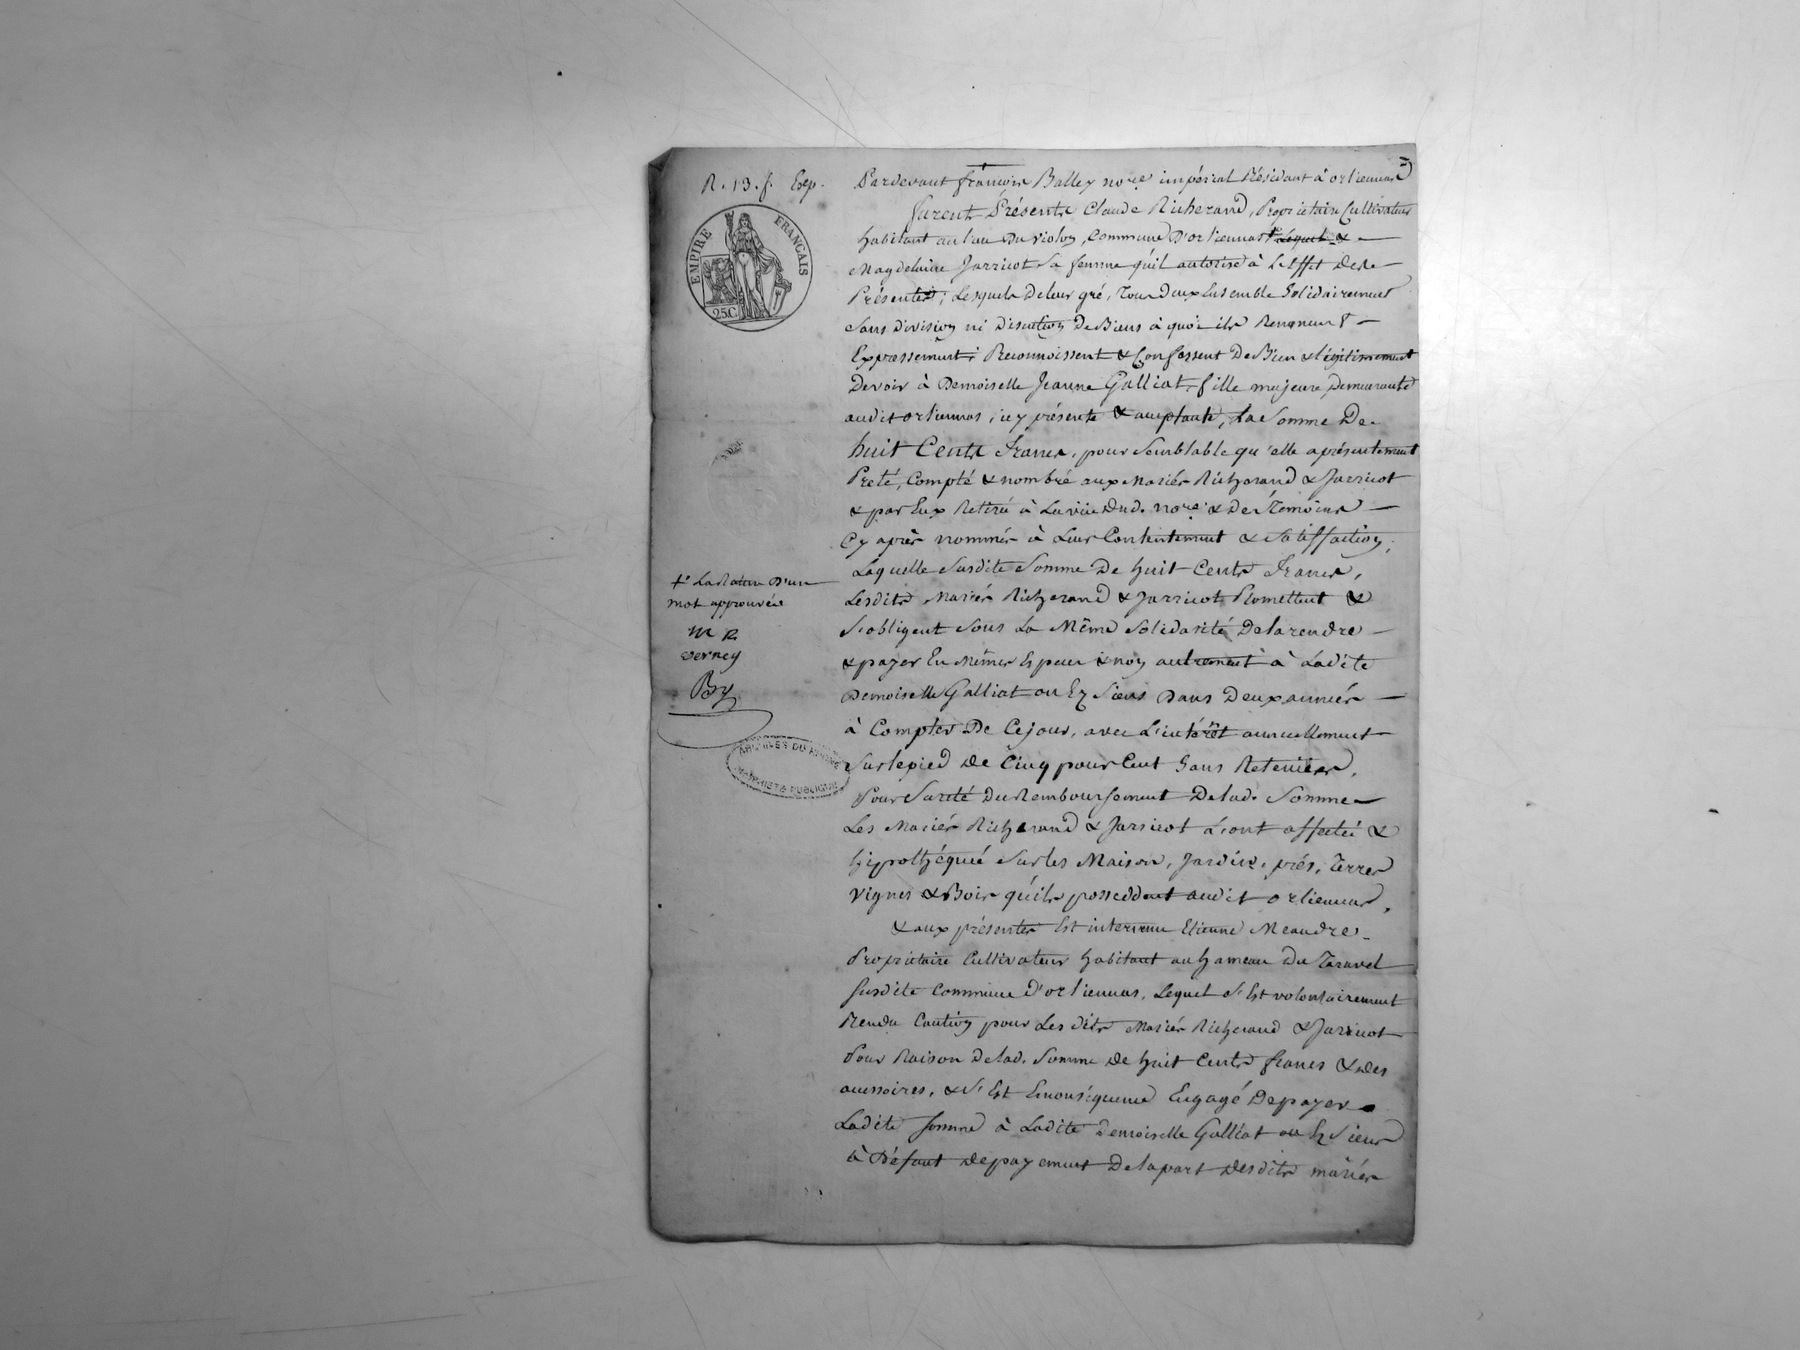 R. 13. f. Exp.
EMPIRE FRANÇAIS
25C.
Pardevant françois Balley nore impérial Résidant à orliennas
furent Présents Claude Richerand, Proprietaire Cultivateur
habitant au lieu du violon, Commune D'orliennas + Lequel &
Magdelaine Jarricot Sa femme qu'il autorise à L'effet De Ce
Présentes; Lesquels De leur gré, Tous Deux Ensemble Solidairement
Sans Division ni Discution De Biens à quoi ils Renoncent
Expressement; Reconnoissent & Confessent De Bien & légitimement
Devoir à Demoiselle Jeanne Galliat, fille majeure Demeurante
audit orliennas, icy présente & acceptante, La Somme De
huit Cents Francs, pour Semblable qu'elle a présentement
Preté, Compté & nombré aux Mariés Richerand & Jarricot
& par Eux Retiré à La vüe Dud. nore & Des Témoins
Cy après nommés à Leur Contentement & Satisfaction;
Laquelle Susdite Somme De huit Cents Francs,
Lesdits Mariés Richerand & Jarricot Promettent &
S'obligent Sous La Même Solidarité De la rendre
& payer En Mêmes Especes & non autrement à Ladite
Demoiselle Galliat ou Ez Siens Dans Deux années
à Compter De Ce jour, avec L'intérêt annuellement
Sur le pied De Cinq pour Cent Sans Retenües,
Pour Sureté Du Remboursement De lad. Somme
Les Mariés Richerand & Jarricot L'ont affecté &
hippothéquée Sur les Maison, Jardin, prés, Terres
Vignes & Bois qu'ils posseddent audit orliennas,
& aux présentes Est intervenu Etienne Meaudre
Proprietaire Cultivateur habitant au hameau Du Taravel
Susdite Commune D'orliennas, Lequel S'Est volontairement
Rendu Caution pour Les dits Mariés Richerand & Jarricot
Pour Raison De lad. Somme De huit Cents francs & des
accessoires, & S'Est Enconséquence Engagé De payer
Ladite Somme à Ladite Demoiselle Galliat ou Ez Siens
à Défaut De payement De la part Desdits mariés
+ La Rature D'un
mot approuvée
M R
verney
By
ARCHIVES DU RHONE
PROPRIÉTÉ PUBLIQUE